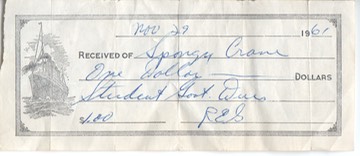 Nov 29 1961
RECEIVED OF Spongy Crane
One Dollar DOLLARS
Student Govt Dues
$1.00 RES